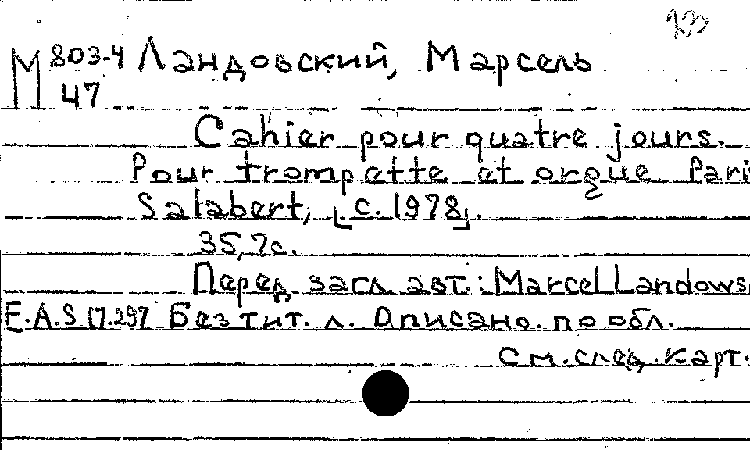 М 803-4 Ландовский, Марсель
47
Cahier pour quatre jours.
Pour trompette et orgue Pari
Salabert, [c. 1978].
35, 7 с.
Перед загл. авт.: Marcel Landows
E.A.S 17.297 Без тит. л. Описано по обл.
См. след. карт.